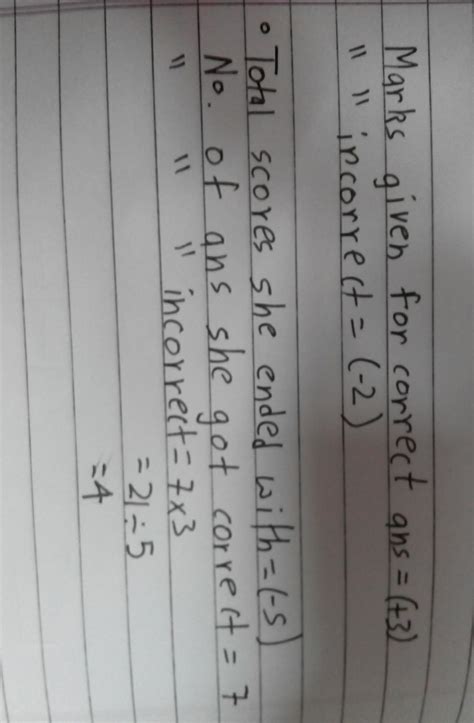 Marks given for correct ans = (+3)
" " incorrect = (-2)
• Total scores she ended with = (-5)
No. of ans she got correct = 7
" " " incorrect = 7x3
= 21÷5
= 4